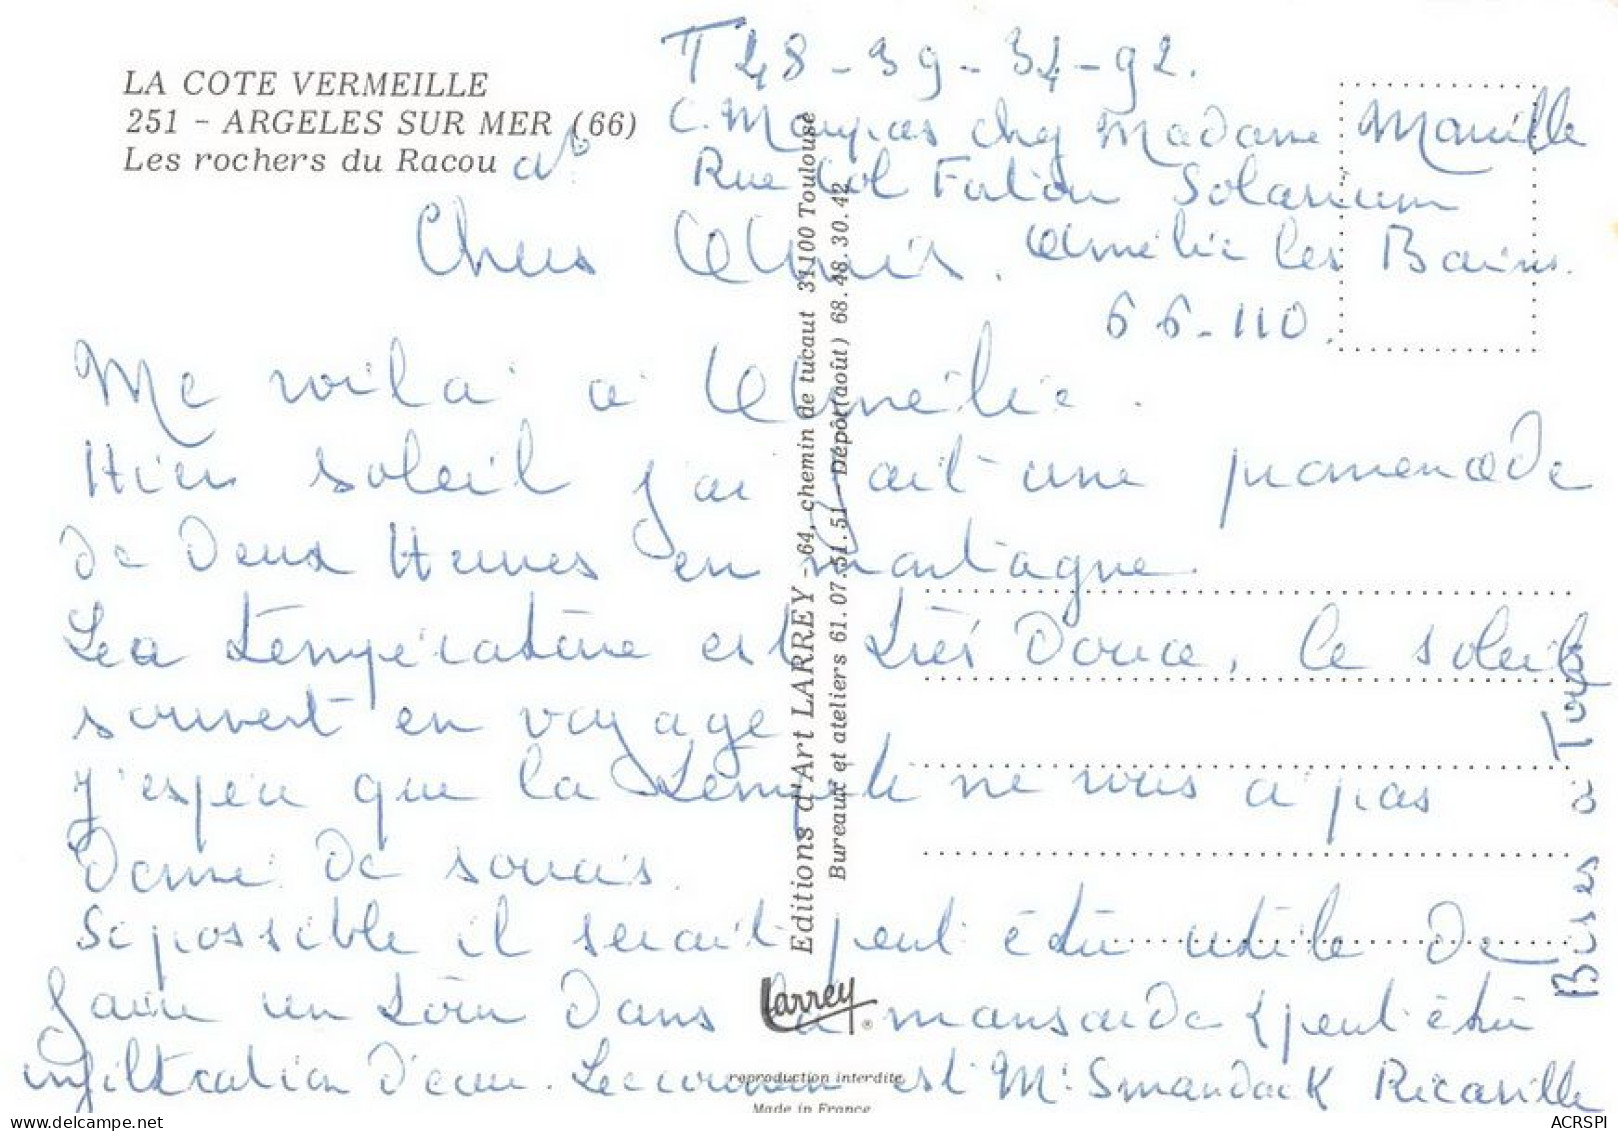 LA COTE VERMEILLE
251 - ARGELES SUR MER (66)
Les rochers du Racou
T 48-39-34-92.
C. Maupas chez Madame Manille
Rue Col Solarium
Amélie les Bains.
66-110.
Chers Amis.
Me voilà à Amélie.
Hier soleil j'ai fait une promenade
de Deux Heures en montagne.
La température est très Douce, le soleil
souvent en voyage
J'espère que la Tempête ne vous a pas
Donné De soucis.
Si possible il serait peut être utile De
faire un tour Dans la mansarde (peut être
infiltration D'eau. est Mr Smandack
Bises à Tous
Editions d'Art LARREY - 64, chemin de tucaut 31100 Toulouse
Bureaux et ateliers 61.07.51.51 - Dépôt (août) 68.48.30.42
Larrey ®
reproduction interdite
Made in France
ACRSPI